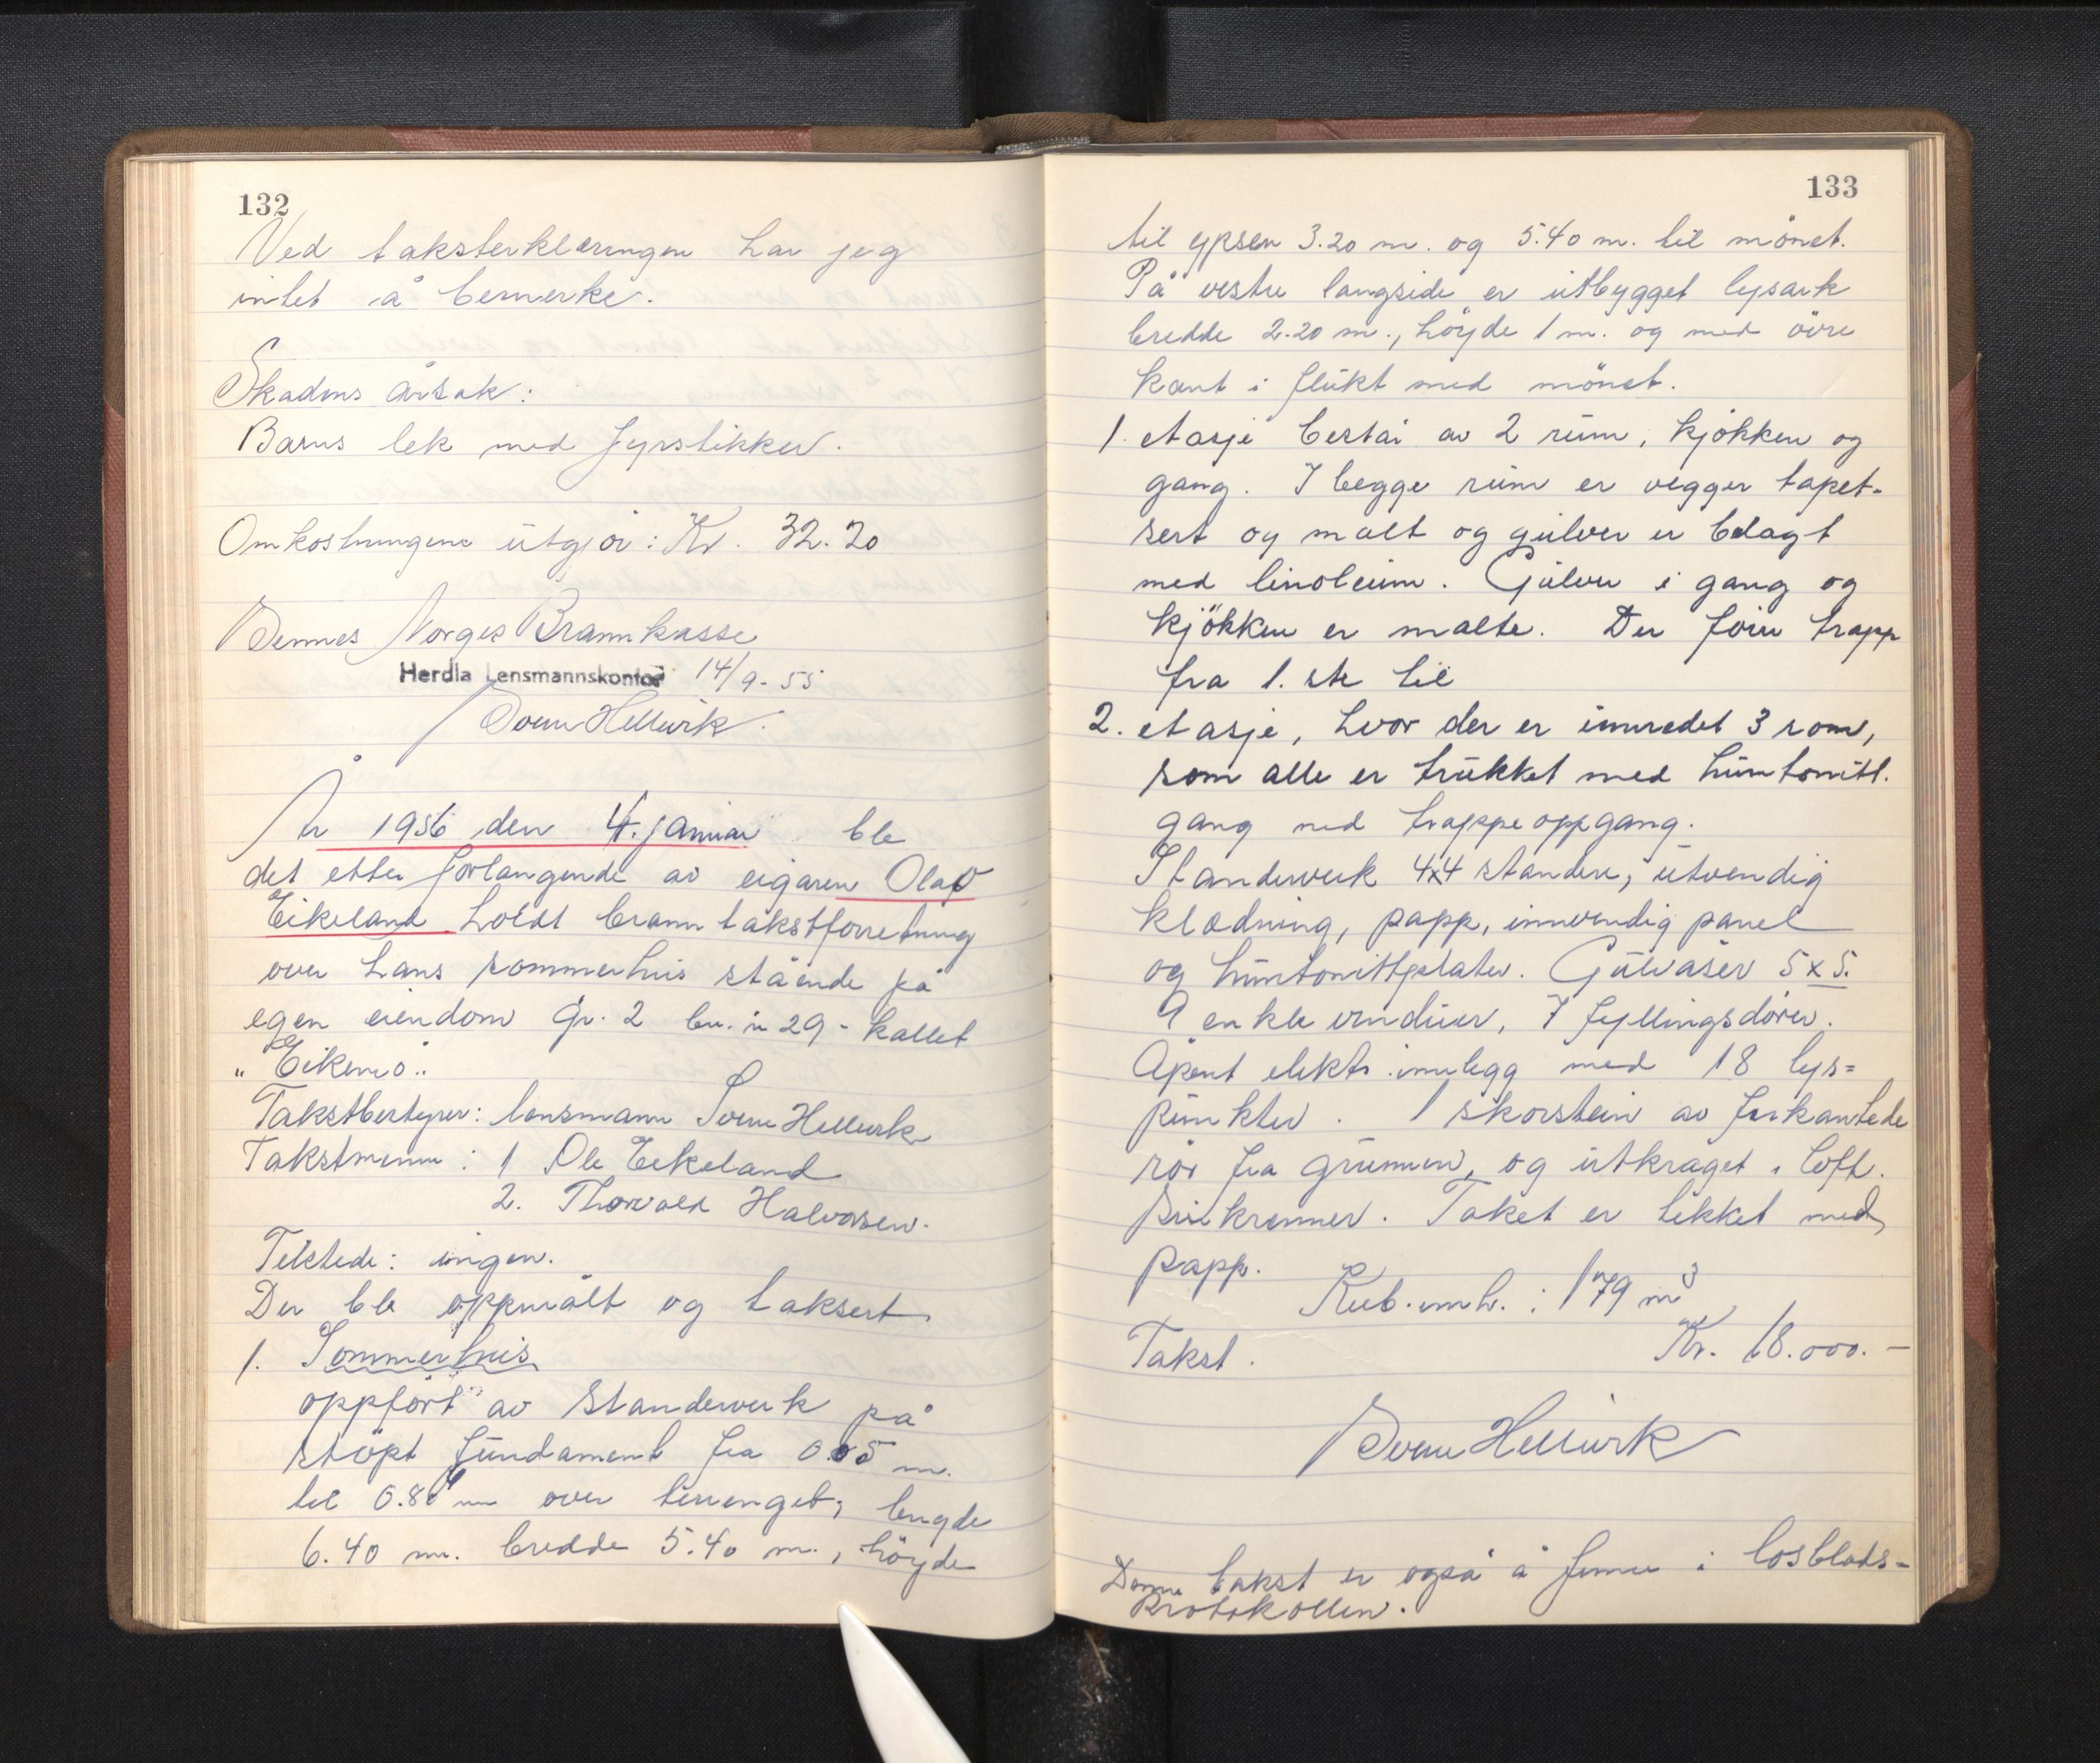 132
Ved taksterklæringen har jeg
intet å bemerke.
Skadens årsak:
Barns lek med fyrstikker.
Omkostningene utgjør: Kr. 32.20
Sennes Norges Brannkasse
Herdla Lensmannskontor 14/9-55
Svein Hellvik
År 1956 den 4. januar ble
det etter forlangende av eigaren Olav
Eikeland holdt branntakstforretning
over hans sommerhus stående på
egen eiendom Gr. 2 br. nr 29 - kallet
"Eikemo".
Takstbestyrer: lensmann Svein Hellvik
Takstmenn: 1 Ole Eikeland
2. Thorvald Halvorsen.
Tilstede: ingen.
Der ble oppmålt og taksert
1. Sommerhus
oppført av standerverk på
støpt fundament fra 0.05 m.
til 0.80 m over terrenget, lengde
6.40 m. bredde 5.40 m., høyde
133
til gpsen 3.20 m. og 5.40 m. til mønet.
På vestre langside er utbygget lysark
bredde 2.20 m., høyde 1 m. og med øvre
kant i flukt med mønet.
1. etasje består av 2 rum, kjøkken og
gang. I begge rum er vegger tapet-
sert og malt og gulver er belagt
med linoleum. Gulver i gang og
kjøkken er malte. Der fører trapp
fra 1. ste til
2. etasje, hvor der er innredet 3 rom,
som alle er trukket med huntonitt.
gang med trappeoppgang.
Standerverk 4x4 standere, utvendig
klædning, papp, innvendig panel
og huntonittplater. Gulvåser 5x5.
9 enkle vinduer, 7 fyllingsdører.
Åpent elektr. innlegg med 18 lys=
punkter. 1 skorstein av firkantede
rør fra grunnen, og utkraget i loft.
Sinkrenner. Taket er tekket med
papp.
Kub. innh.: 179 m3
Takst. Kr. 18.000.-
Svein Hellvik
Denne takst er også å finne i løsblads-
protokollen.